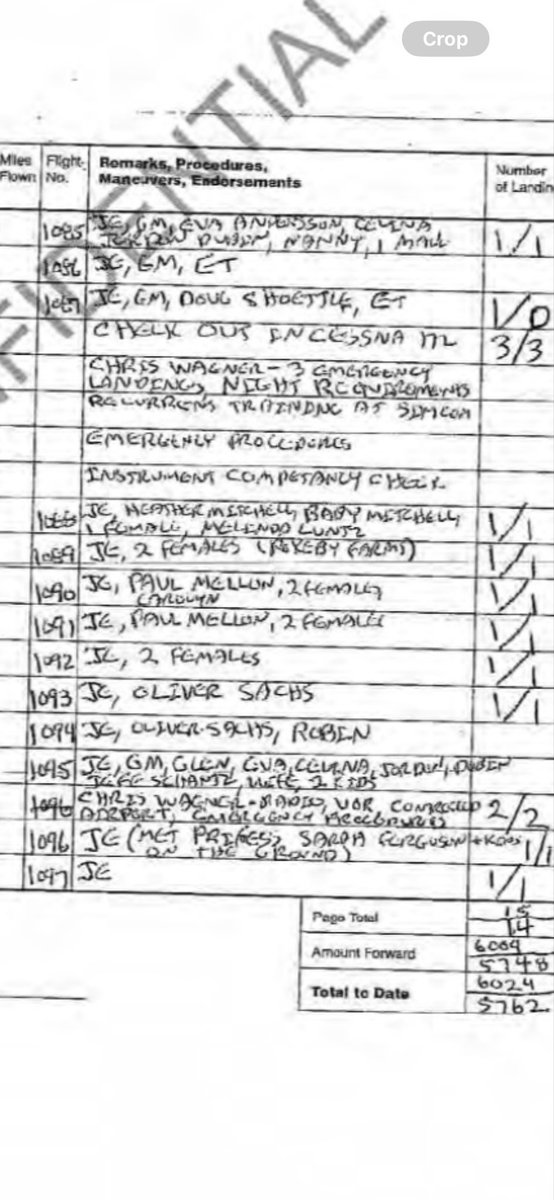 Crop
FIDENTIAL
Miles Flown
Flight No.
Remarks, Procedures, Maneuvers, Endorsements
Number of Landin
1085 JE, GM, EVA ANDERSSON, CELINA
DUBIN, NANNY, 1 MALE 1/1
1086 JE, GM, ET
1087 JE, GM, DOUG SHOETTLE, ET 1/0
CHECK OUT IN CESSNA 3/3
CHRIS WAGNER - 3 EMERGENCY
LANDINGS, NIGHT REQUIREMENTS
RECURRENT TRAINING AT SIMCOM
EMERGENCY PROCEDURES
INSTRUMENT COMPETANCY CHECK
1088 JE, HEATHER MITCHELL, BABY MITCHELL,
1 FEMALE, MELINDA LUNTZ 1/1
1089 JE, 2 FEMALES (ROKEBY FARMS) 1/1
1090 JE, PAUL MELLON, 2 FEMALES
CAROLYN 1/1
1091 JE, PAUL MELLON, 2 FEMALES 1/1
1092 JE, 2 FEMALES 1/1
1093 JE, OLIVER SACHS 1/1
1094 JE, OLIVER SACHS, ROBIN
1095 JE, GM, GLEN, EVA, CELINA, JORDAN, DUBIN
JEFF SCHANTZ, WIFE, 2 KIDS
1096 CHRIS WAGNER - RADIO, VOR, CONTROLLED
AIRPORT, EMERGENCY PROCEDURES 2/2
1096 JE (MET PRINCESS SARAH FERGUSON + KIDS
ON THE GROUND) 1/1
1097 JE 1/1
Page Total 15
14
Amount Forward 6009
5748
Total to Date 6024
5762